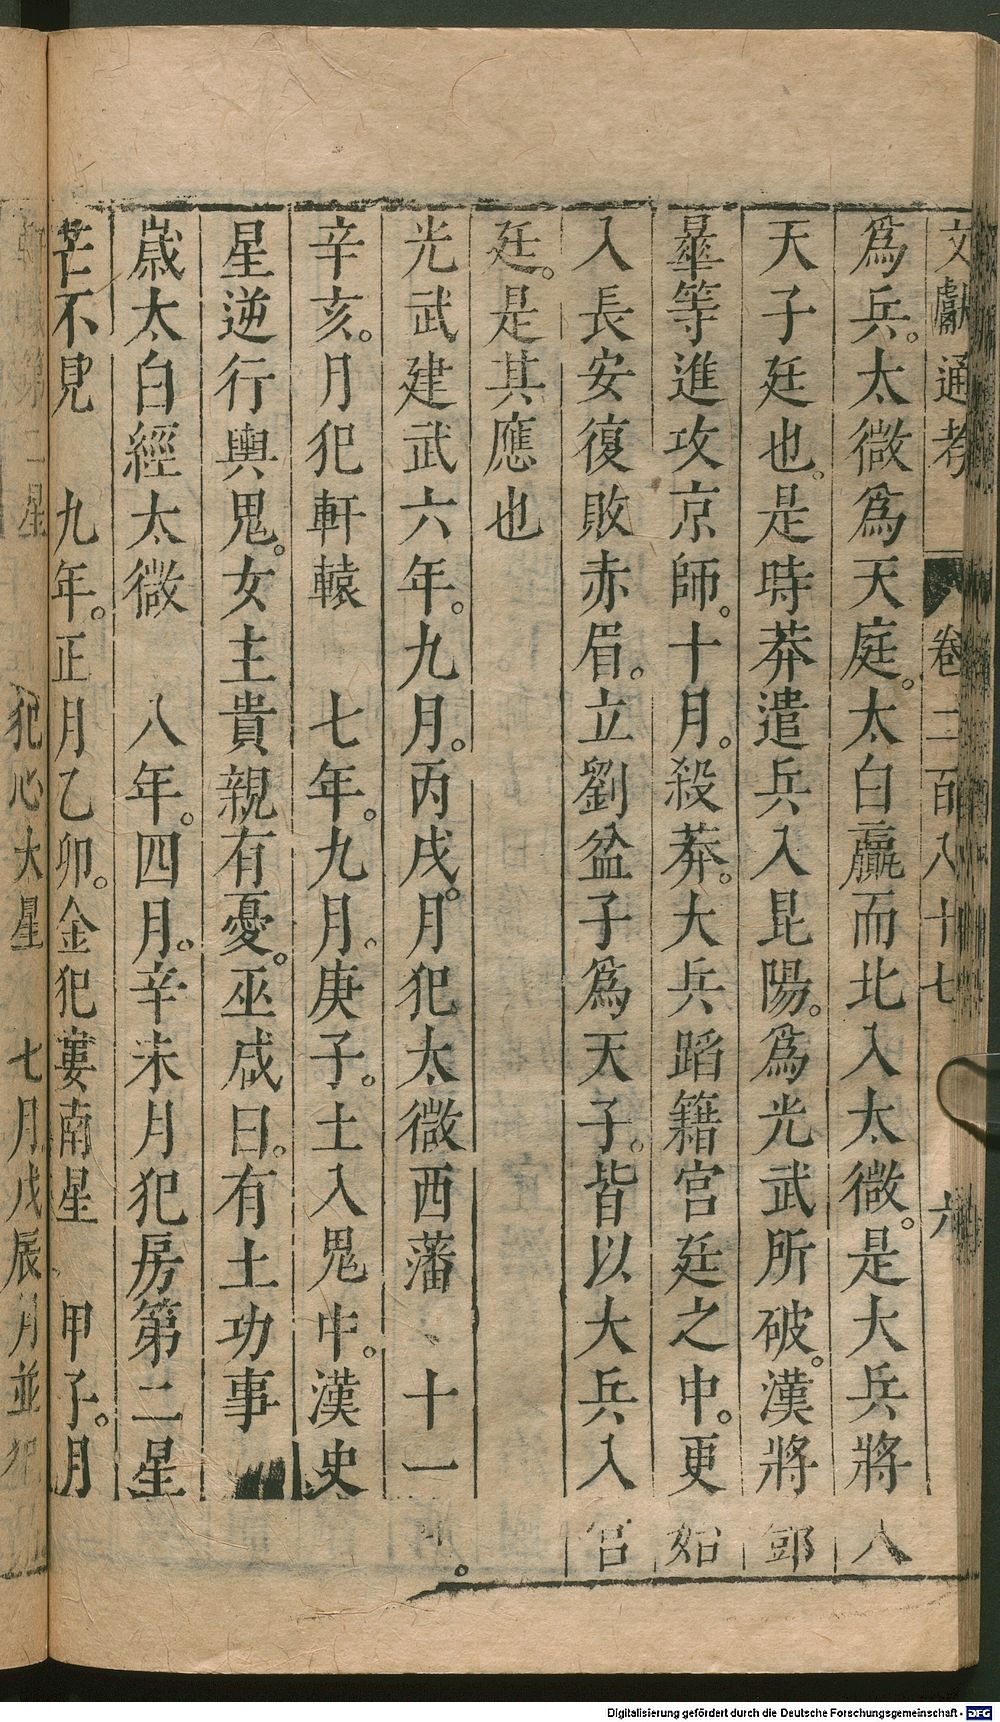 文獻通考 卷二百八十七 六
爲兵。太微爲天庭。太白贏而北入太微。是大兵將入
天子廷也。是時莽遣兵入昆陽。爲光武所破。漢將鄧
曅等進攻京師。十月。殺莽。大兵蹈籍宮廷之中。更始
入長安復敗赤眉。立劉盆子爲天子。皆以大兵入宮
廷。是其應也
光武建武六年。九月。丙戌。月犯太微西藩 十一
辛亥。月犯軒轅 七年。九月。庚子。土入鬼中。漢史
星逆行輿鬼。女主貴親有憂。巫咸曰。有土功事
歲太白經太微 八年。四月。辛未月犯房第二星
芒不見 九年。正月乙卯。金犯婁南星 甲子。月
犯心大星 七月戊辰月並犯
第二星
Digitalisierung gefördert durch die Deutsche Forschungsgemeinschaft - DFG